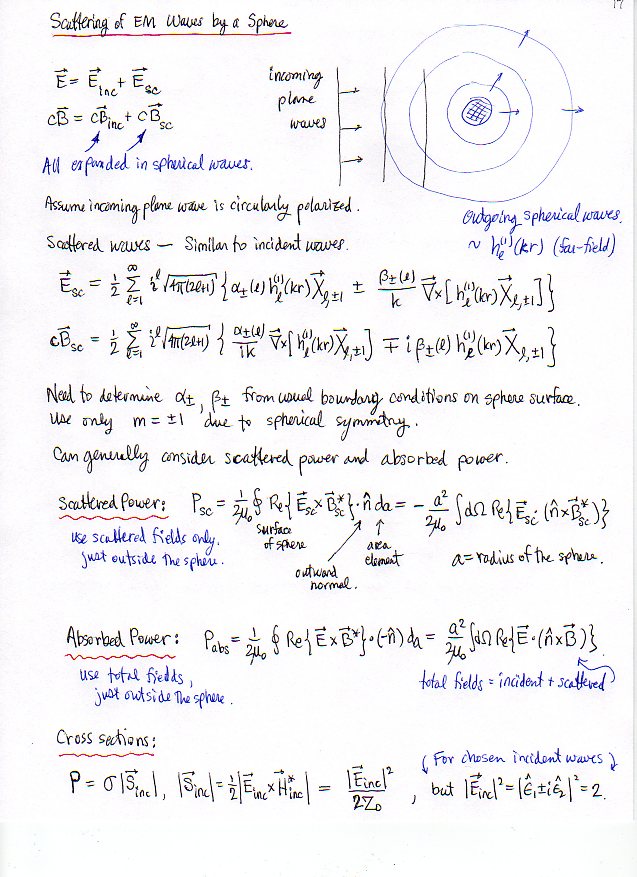 17
Scattering of EM Waves by a Sphere
E⃗ = E⃗_inc + E⃗_sc
cB⃗ = cB⃗_inc + cB⃗_sc
All expanded in spherical waves.
incoming
plane
waves
Outgoing spherical waves
~ h_ℓ^(1)(kr) (far-field)
Assume incoming plane wave is circularly polarized.
Scattered waves — Similar to incident waves.
E⃗_sc = 1/2 ∑_{ℓ=1}^∞ i^ℓ √(4π(2ℓ+1)) { α±(ℓ) h_ℓ^(1)(kr) X⃗_ℓ,±1 ± β±(ℓ)/k ∇⃗×[h_ℓ^(1)(kr) X⃗_ℓ,±1] }
cB⃗_sc = 1/2 ∑_{ℓ=1}^∞ i^ℓ √(4π(2ℓ+1)) { α±(ℓ)/ik ∇⃗×[h_ℓ^(1)(kr) X⃗_ℓ,±1] ∓ i β±(ℓ) h_ℓ^(1)(kr) X⃗_ℓ,±1 }
Need to determine α±, β± from usual boundary conditions on sphere surface.
Use only m = ±1 due to spherical symmetry.
Can generally consider scattered power and absorbed power.
Scattered Power: P_sc = 1/2μ₀ ∮ Re{E⃗_sc × B⃗_sc*}·n̂ da = − a²/2μ₀ ∫dΩ Re{E⃗_sc·(n̂×B⃗_sc*)}
use scattered fields only.
just outside the sphere.
surface
of sphere
outward
normal.
area
element
a = radius of the sphere.
Absorbed Power: P_abs = 1/2μ₀ ∮ Re{E⃗ × B⃗*}·(−n̂) da = a²/2μ₀ ∫dΩ Re{E⃗·(n̂×B⃗)}
use total fields,
just outside the sphere.
total fields = incident + scattered
Cross sections:
(For chosen incident waves)
P = σ|S⃗_inc|, |S⃗_inc| = 1/2|E⃗_inc × H⃗_inc*| = |E⃗_inc|²/2Z₀ , but |E⃗_inc|² = |ε̂₁ ± iε̂₂|² = 2.